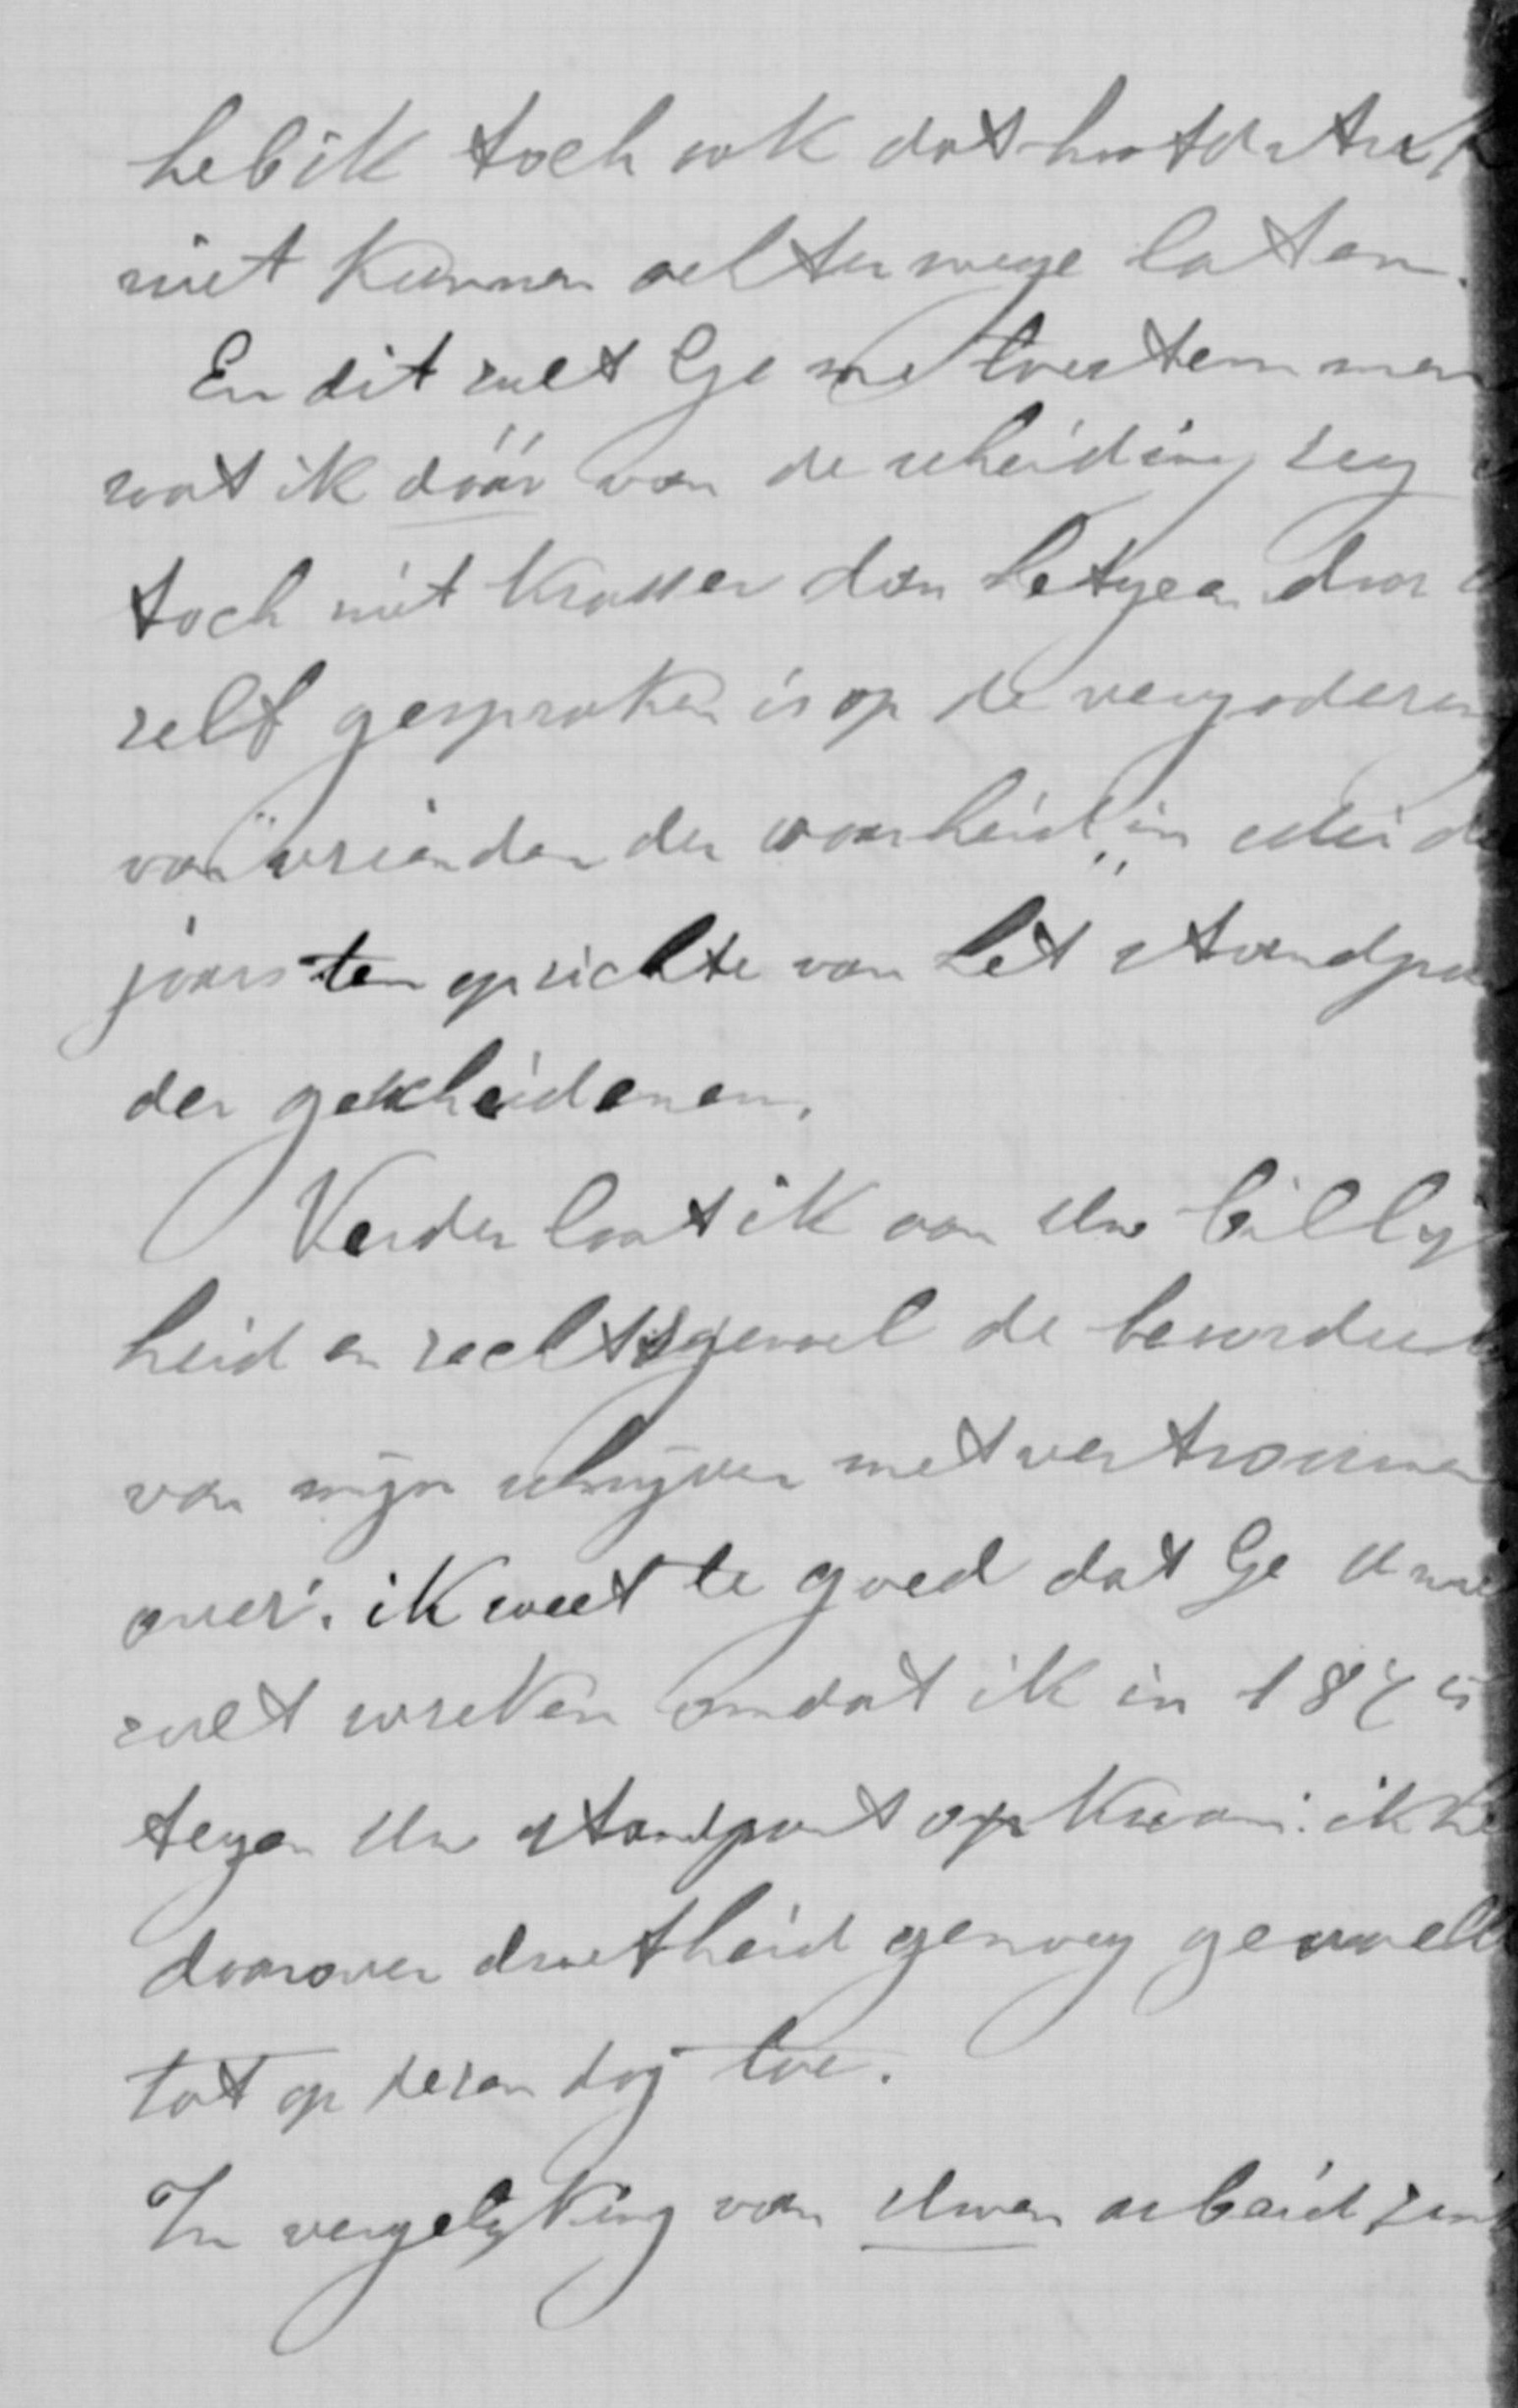 heb ik toch ook dat hoofdstuk
niet kunnen achterwege laten.
En dit zult Ge me toestemmen
wat ik dáár van de scheiding zeg
toch niet krasser dan hetgeen door
zelf gesproken is op de vergadering
van "vrienden der waarheid" in
jaars ten opzichte van het standpun
der gescheidenen.
Verder laat ik aan Uw billijk
heid en rechtsgevoel de beoordeel
van mijn schrijven met vertrouwen
over. ik weet te goed dat Ge U niet
zult wreken omdat ik in 1875
tegen Uw standpunt opkwam: ik he
daarover droefheid genoeg gevoeld
tot op dezen dag toe.
In vergelijking van Uwen arbeid zink